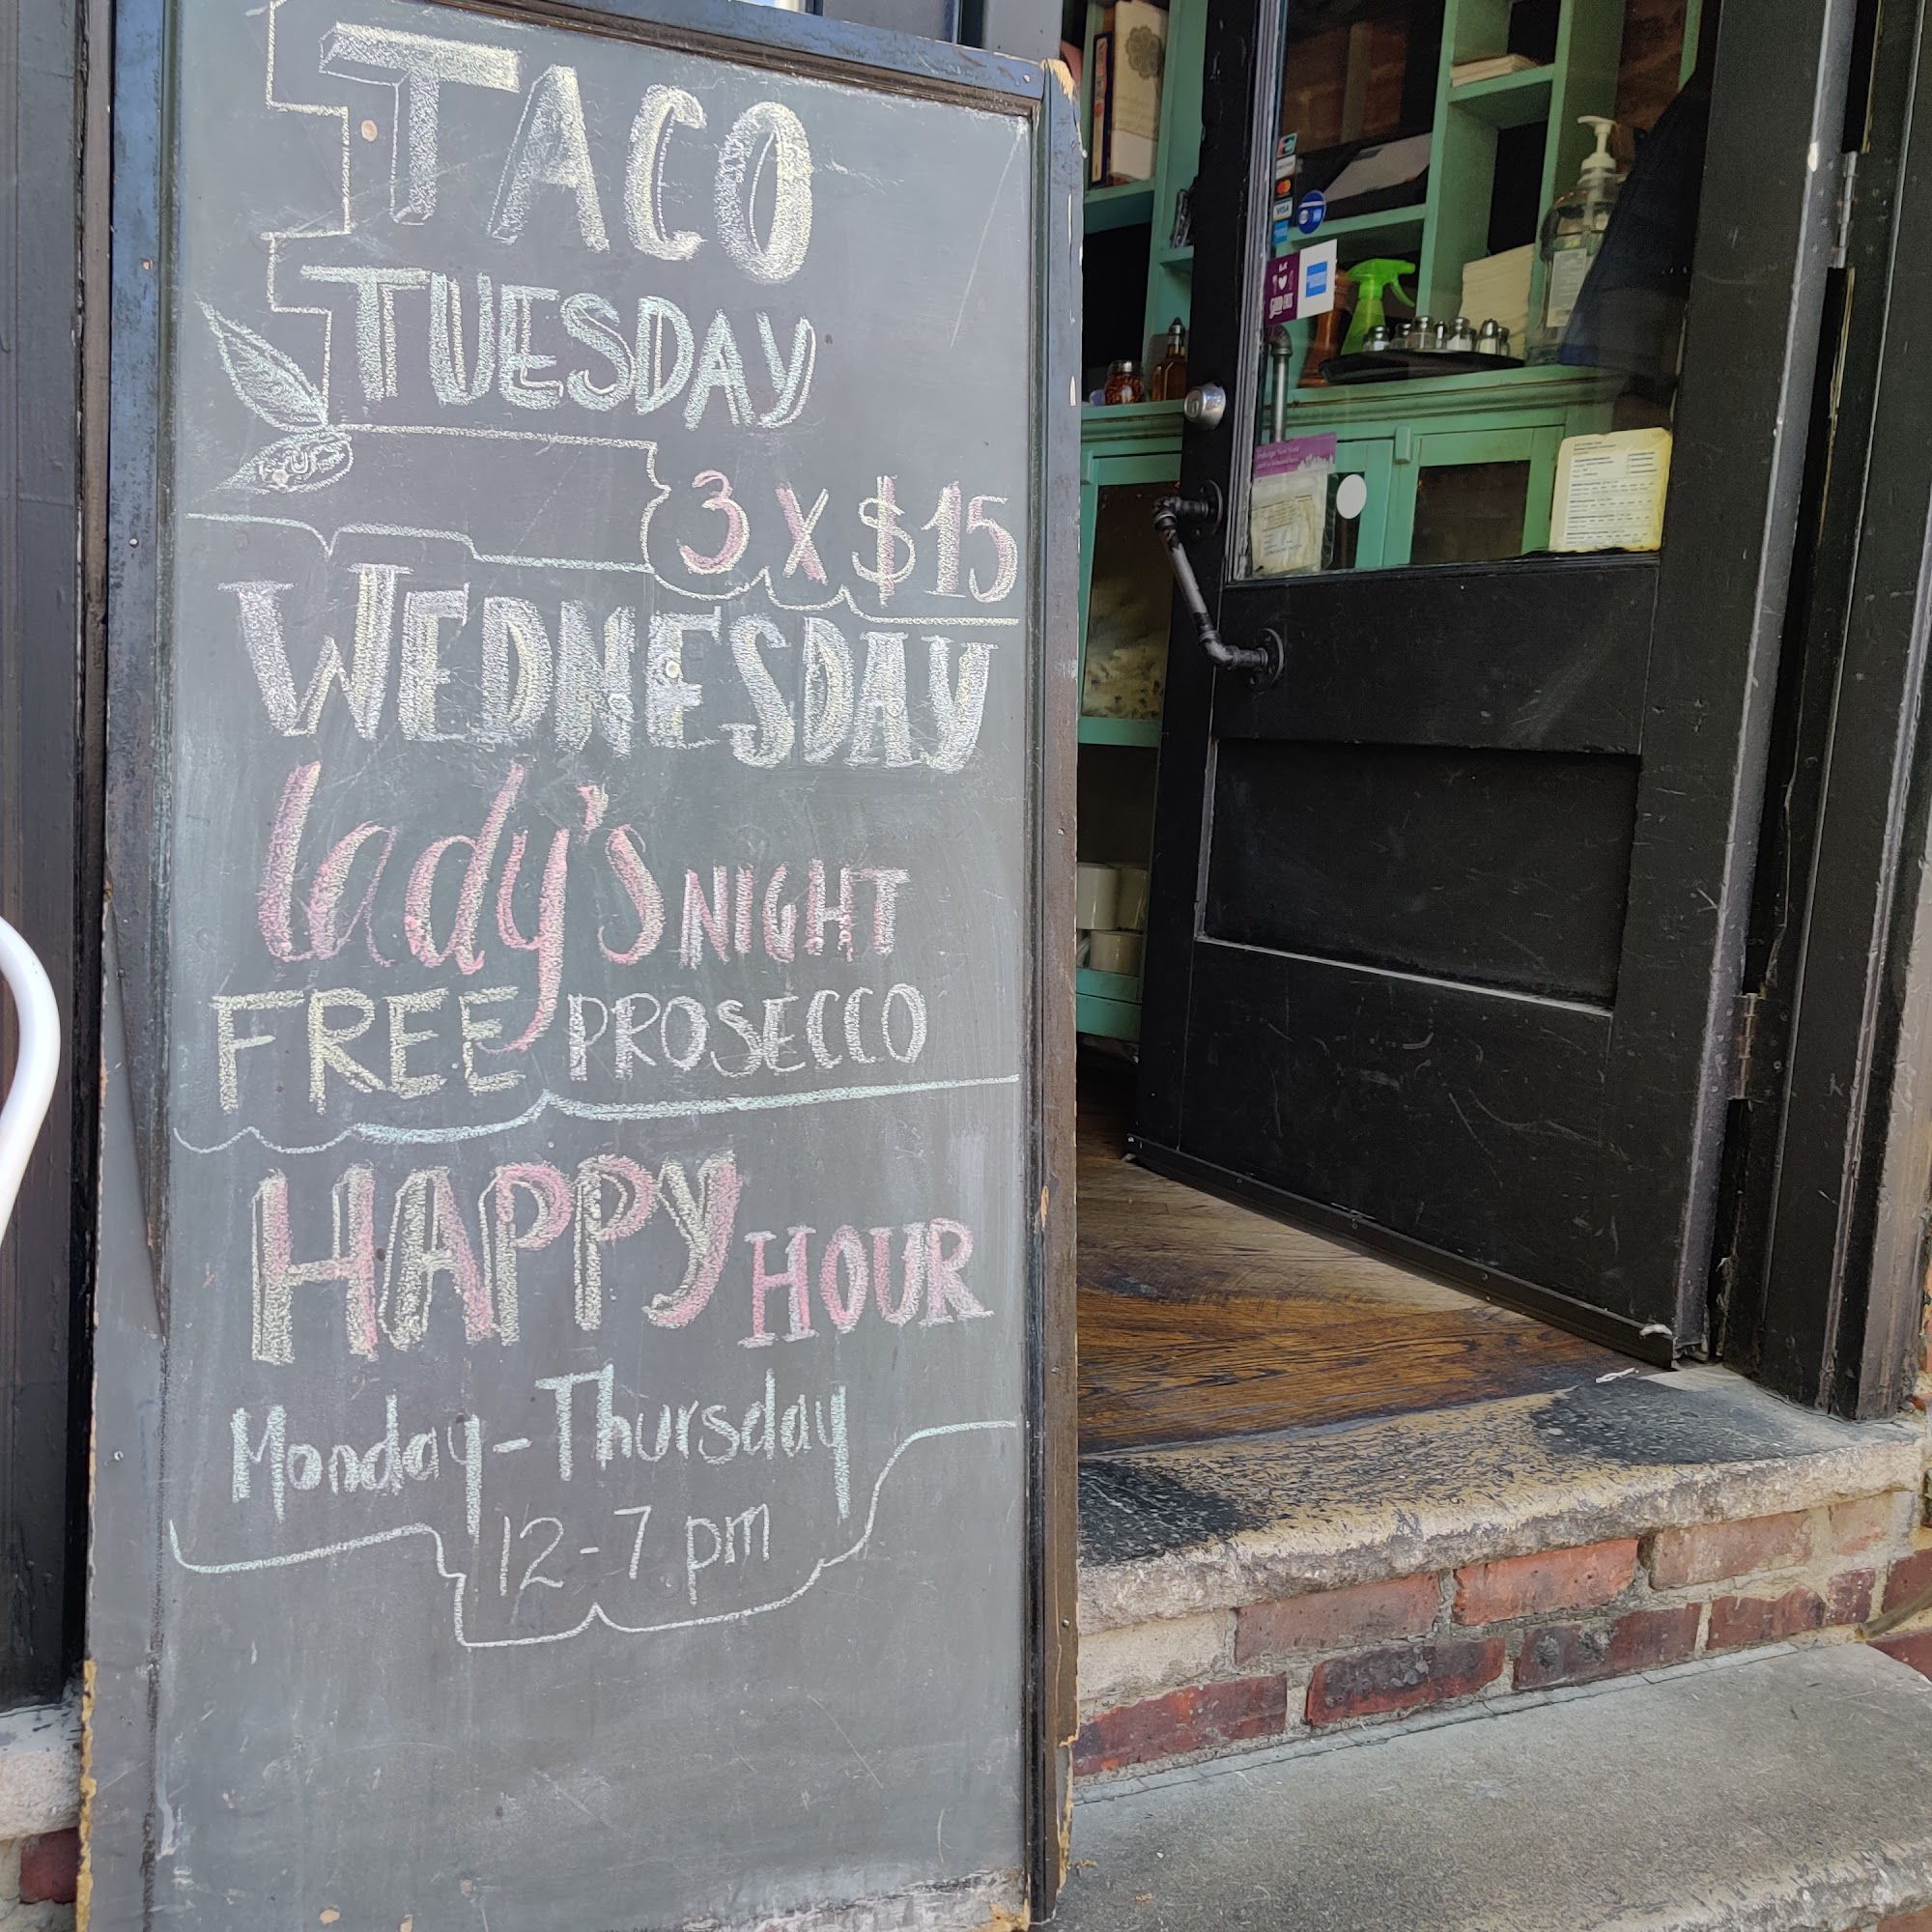 TACO
TUESDAY
3 X $15
WEDNESDAY
lady's NIGHT
FREE PROSECCO
HAPPY HOUR
Monday-Thursday
12-7 pm
VISA